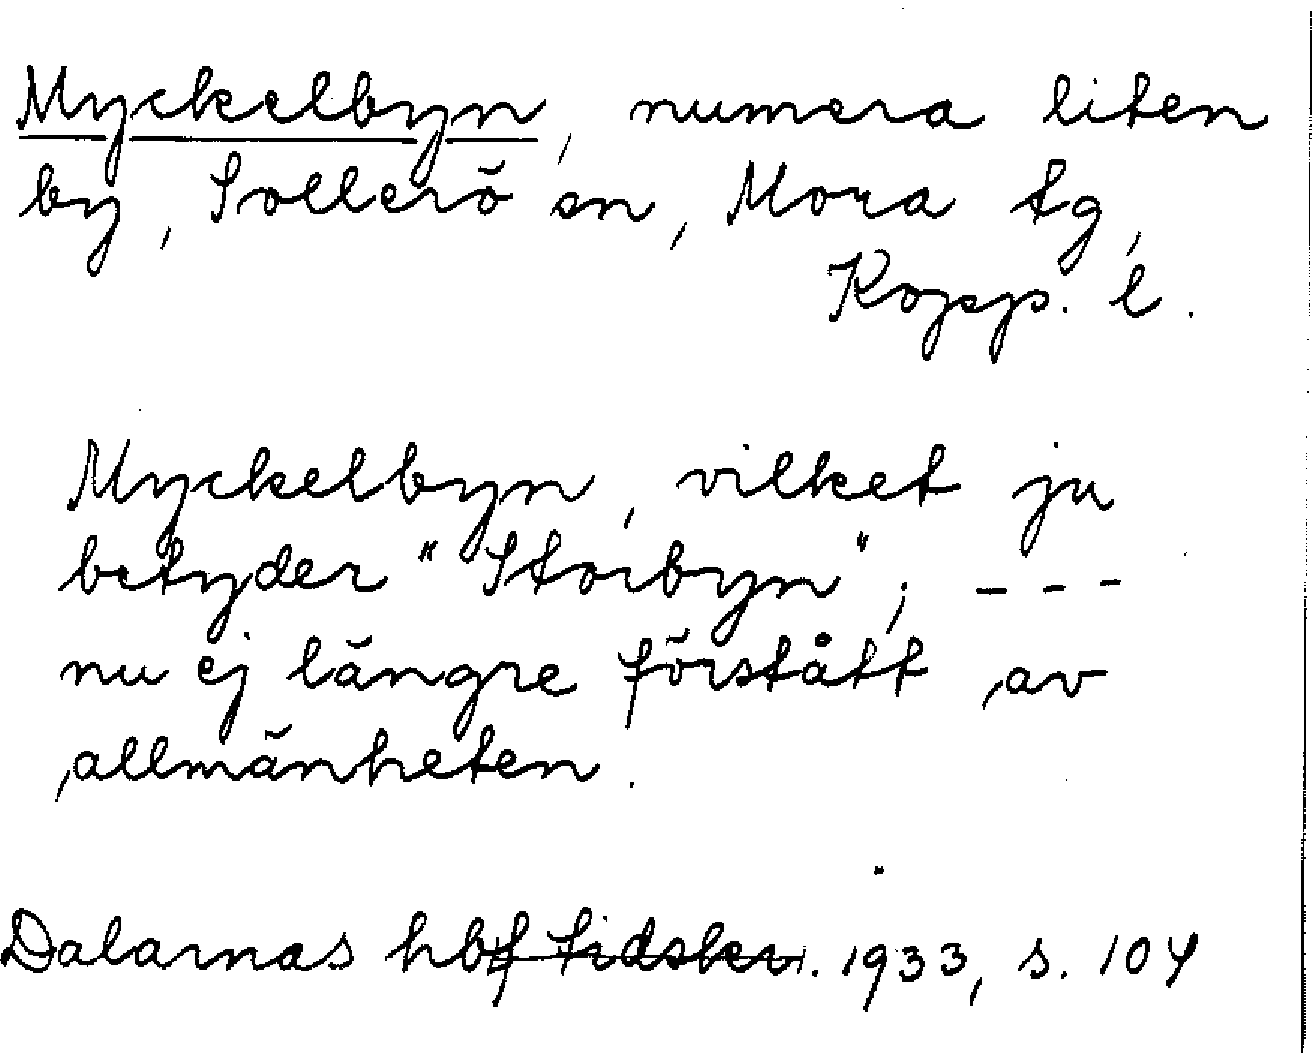 Myckelbyn, numera liten
by, Sollerö sn, Mora tg,
Kopp. l.
Myckelbyn, vilket ju
betyder "Storbyn", - - -
nu ej längre förstått av
allmänheten.
Dalarnas hbf tidskr. 1933, s. 104